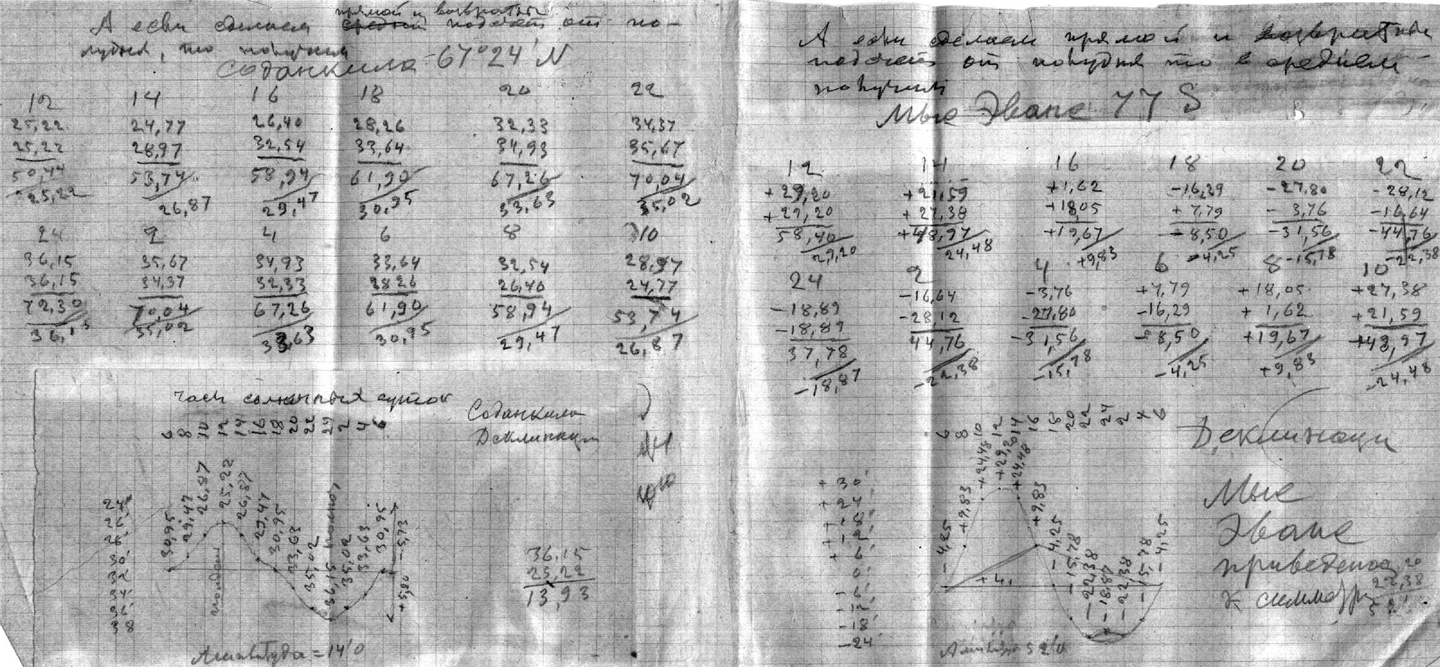 А если сделаем прямой и возвратный
подсчёт от по-
лудня, то получим
Соданкила - 67°24' N
12 14 16 18 20 22
25,22 24,77 26,40 28,26 32,33 34,37
25,22 28,97 32,54 33,64 34,93 35,67
50,44 53,74 58,94 61,90 67,26 70,04
25,22 26,87 29,47 30,95 33,63 35,02
24 2 4 6 8 10
36,15 35,67 34,93 33,64 32,54 28,97
36,15 34,37 32,33 28,26 26,40 24,77
72,30 70,04 67,26 61,90 58,94 53,74
36,15 35,02 33,63 30,95 29,47 26,87
часы солнечных суток
6 8 10 12 14 16 18 20 22 24 2 4 6
Соданкила
Деклинация
30,95 29,47 26,87 25,22 26,87 29,47 30,95 33,63 35,02 36,15 35,02 33,63 30,95
полдень
24'
26'
28'
30'
32'
34'
36'
38
36,15
25,22
13,93
Амплитуда = 14'0
А если сделаем прямой и возвратный
подсчёт от полудня то в среднем
получим
Мыс Эванс 77 S
12 14 16 18 20 22
+29,20 +21,59 +1,62 -16,29 -27,80 -28,12
+29,20 +27,38 +18,05 +7,79 -3,76 -16,64
58,40 +48,97 +19,67 -8,50 -31,56 -44,76
29,20 24,48 +9,83 -4,25 -15,78 -22,38
24 2 4 6 8 10
-18,89 -16,64 -3,76 +7,79 +18,05 +27,38
-18,89 -28,12 -27,80 -16,29 +1,62 +21,59
37,78 44,76 -31,56 -8,50 +19,67 +48,97
-18,87 -22,38 -15,78 -4,25 +9,83 -24,48
6 8 10 12 14 16 18 20 22 24 2 4 6
-4,25 +9,83 +24,48 +29,20 +24,48 +9,83 -4,25 -15,78 -22,38 -18,87 -22,38 -15,78 -4,25
+30'
+24'
+18'
+12'
+6'
0'
-6'
-12'
-18'
-24'
Деклинаци
Мыс
Эванс
приведено
к симметр